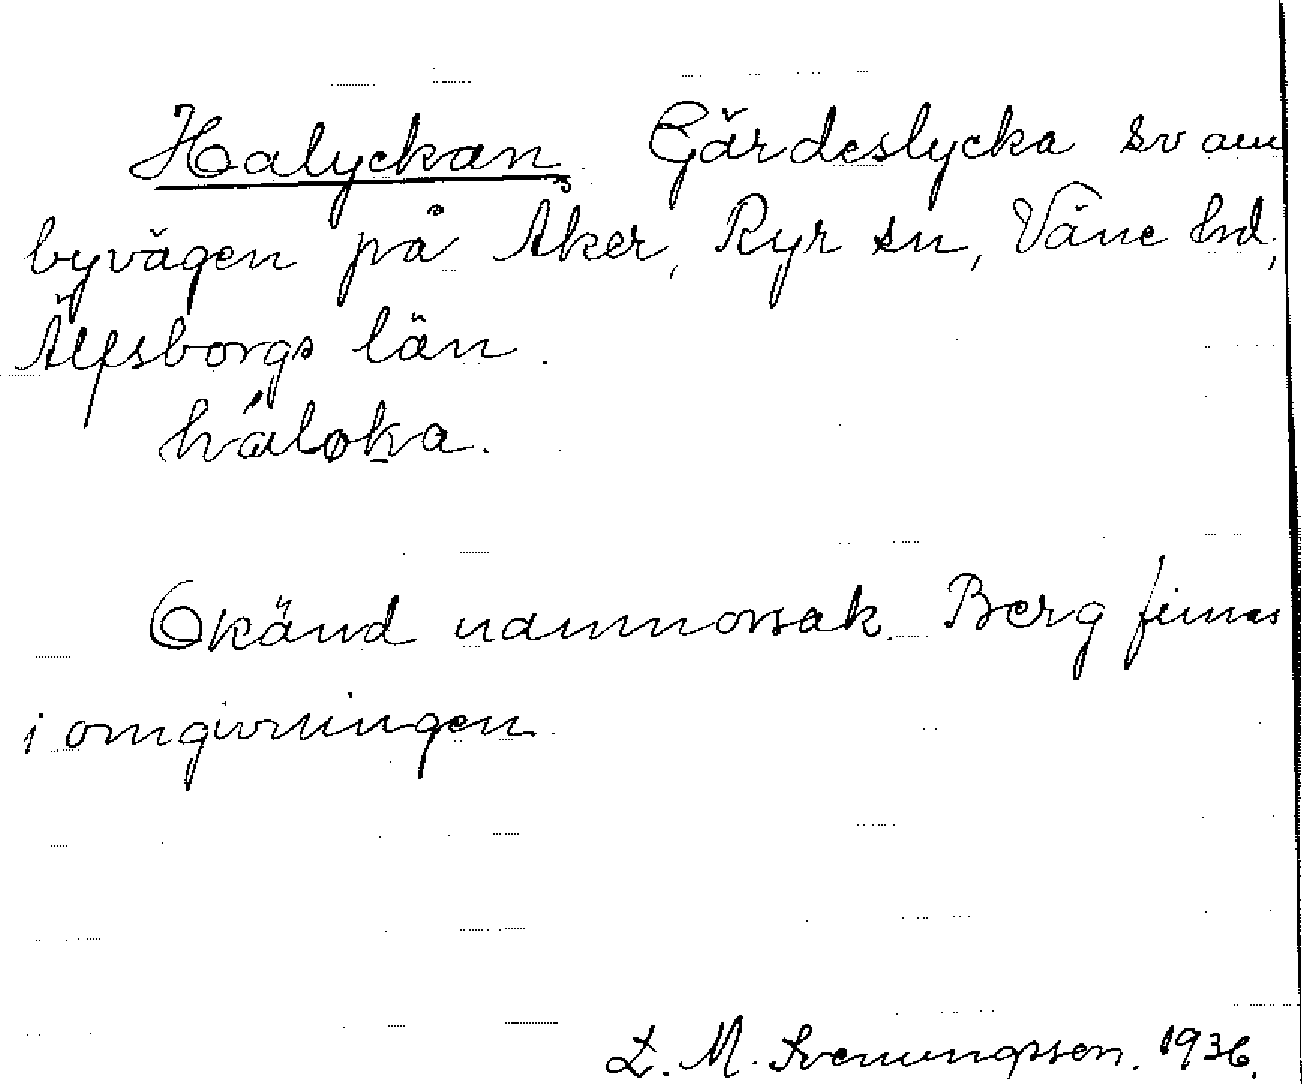 Halyckan, Gärdeslycka sv om
byvägen på Åker, Ryr sn, Väne hd,
Älfsborgs län.
hálǫka.
Okänd namnorsak. Berg finnes
i omgivningen.
L. M. Svenungsson. 1936.